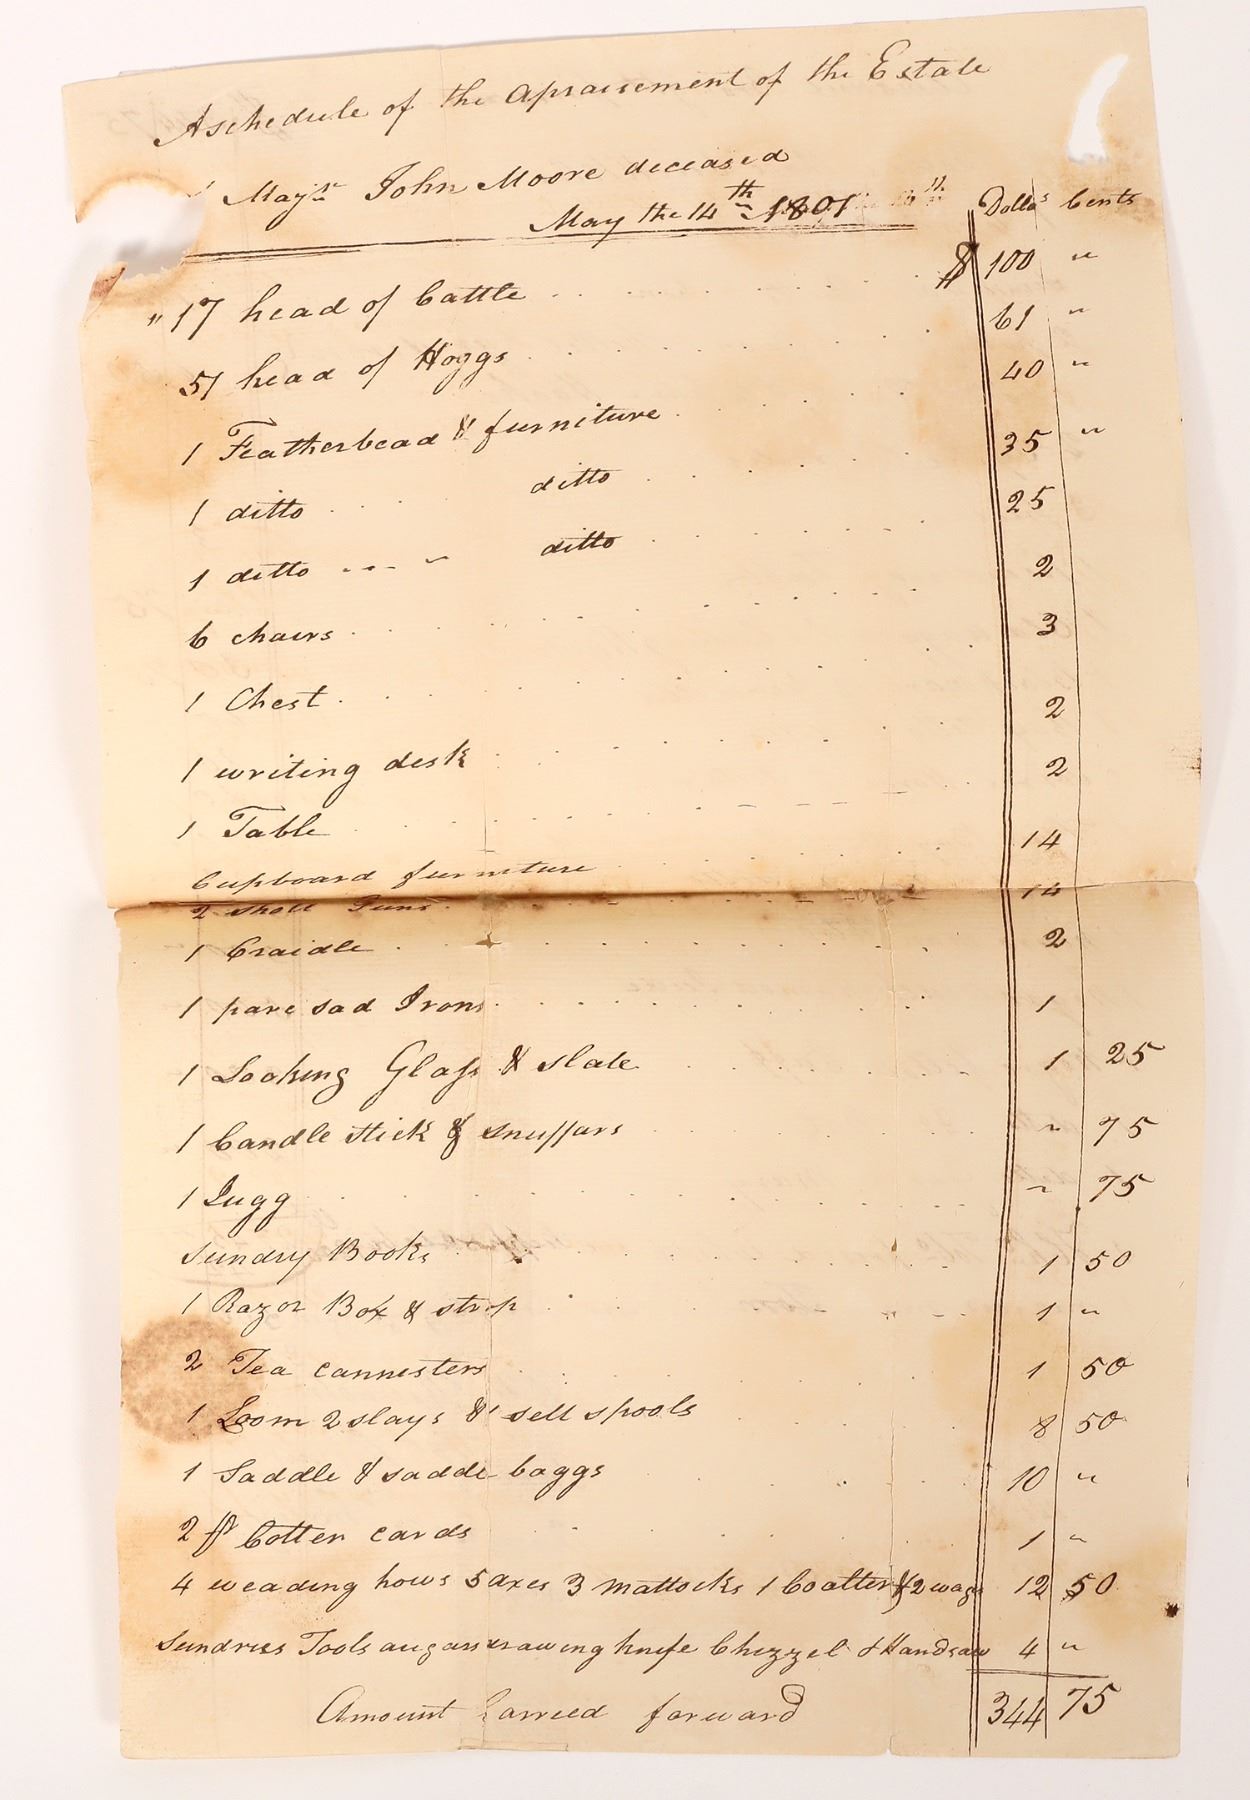 A schedule of the apraisement of the Estate
Majr John Moore deceased
May the 14th 1801
Dollas Cents
" 17 head of Cattle $ 100 "
51 head of Hoggs 61 "
1 Featherbead & furniture 40 "
1 ditto ditto 35 "
1 ditto ditto 25
6 chairs 2
1 Chest 3
1 writing desk 2
1 Table 2
Cupboard furniture 14
2 Shott Guns 14
1 Craidle 2
1 pare sad Irons 1
1 Looking Glass & slate 1 25
1 Candle stick & snuffars " 75
1 Jugg " 75
Sundry Books 1 50
1 Razor Box & strop 1 "
2 Tea cannesters 1 50
1 Loom 2 slays & sett spools 8 50
1 Saddle & sadde baggs 10 "
2 pr Cotten cards 1 "
4 weading hows 5 axes 3 mattocks 1 Coalter & 2 wags 12 50
Sundries Tools augars drawing knife Chizzel & Handsaw 4 "
Amount Carried forward 344 75